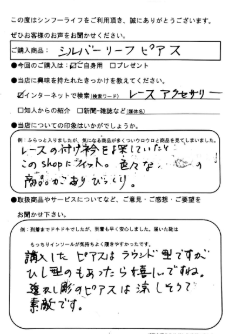 この度はシンフーライフをご利用頂き、誠にありがとうございます。
ぜひお客様のお声をお聞かせください。
ご購入商品： シルバーリーフピアス
●今回のご購入は：☑ご自身用 □プレゼント
●当店に興味を持たれたきっかけを教えてください。
☑インターネットで検索(検索ワード) レースアクセサリー
□知人からの紹介 □新聞・雑誌など(媒体名)
●当店についての印象はいかがでしょうか。
例：ふらっと入りましたが、気になる商品が多くついウロウロと商品を見てしまいました。
レースの付け衿を探していたら
このshopにヒット。色々な の
商品があり びっくり。
●取扱商品やサービスについてなど、ご意見・ご感想・ご要望を
お聞かせ下さい。
例：到着までドキドキでしたが、到着も早く安心しました。届いた靴は
もっちりインソールが気持ちよく履きやすかったです。
購入したピアスはラウンド型ですが
ひし型のもあったら嬉しいですね。
透かし彫のピアスは涼しそうで
素敵です。